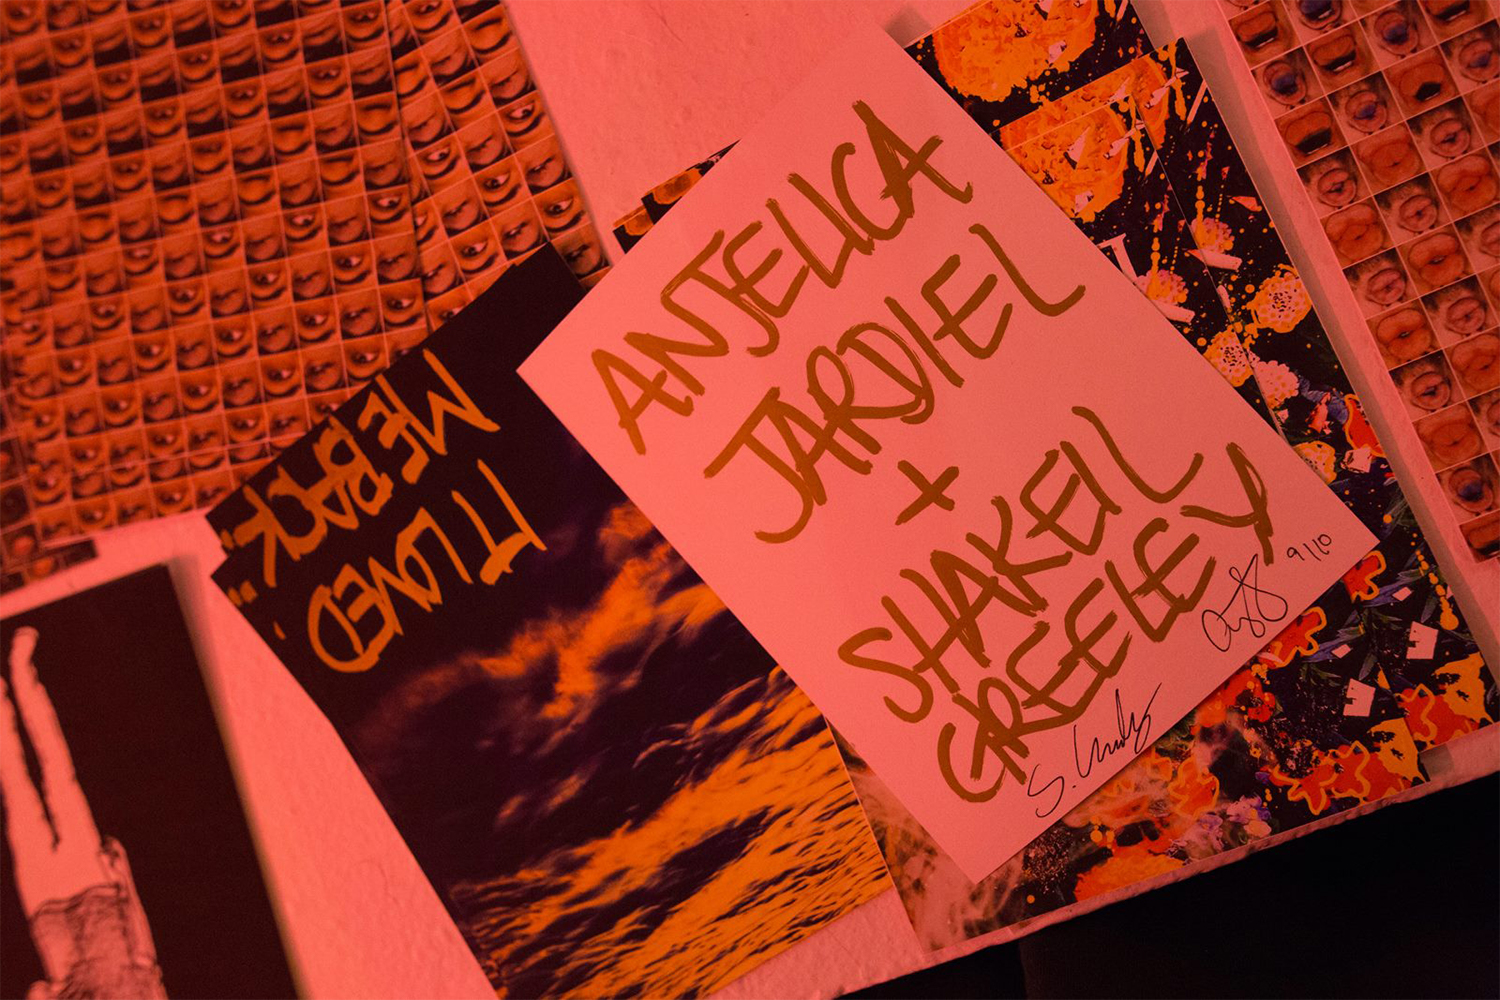 ANJELICA
JARDIEL
+
SHAKEIL
GREELEY
9/10
IT LOVED
ME BACK"